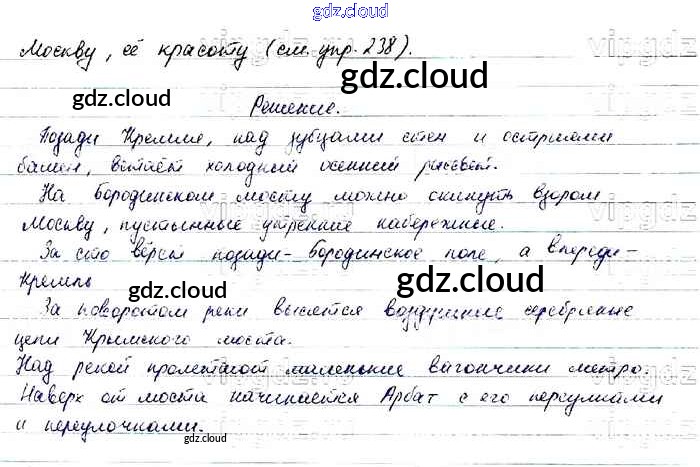 gdz.cloud
Москву, её красоту (см. упр. 238).
gdz.cloud
gdz.cloud
Решение.
Позади Кремля, над зубцами стен и остриями
башен, встаёт холодный осенний рассвет.
На Бородинском мосту можно окинуть взором
Москву, пустынные утренние набережные.
За сто вёрст позади - Бородинское поле, а впереди -
Кремль
gdz.cloud
gdz.cloud
За поворотом реки высятся воздушные серебряные
цепи Крымского моста.
Над рекой пролетают маленькие вагончики метро.
Наверх от моста начинается Арбат с его переулками
и переулочками.
gdz.cloud